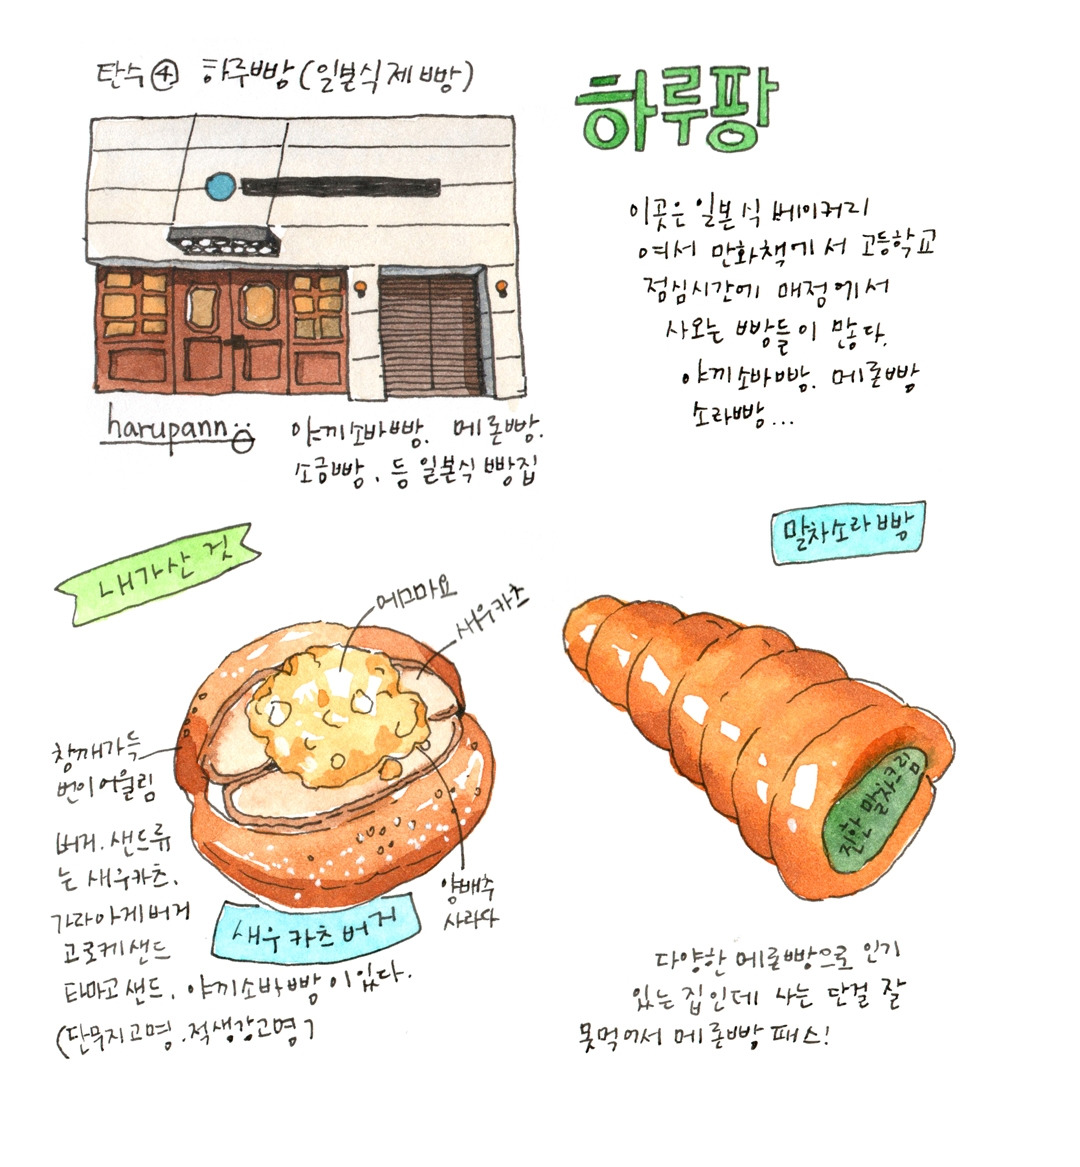 탄수④ 하루빵(일본식제빵)
하루팡
이곳은 일본식 베이커리
여서 만화책에서 고등학교
점심시간에 매점에서
사오는 빵들이 많다.
야끼소바빵. 메론빵
소라빵...
harupann
야끼소바빵. 메론빵.
소금빵. 등 일본식 빵집
내가산 것
말차소라빵
에그마요
새우카츠
참깨가득
번이 어울림
양배추
사라다
진한 말차크림
새우카츠버거
버거. 샌드류
는 새우카츠.
가라아게버거
고로케샌드
타마고샌드. 야끼소바빵이있다.
(단무지고명.적생강고명)
다양한 메론빵으로 인기
있는 집인데 나는 단걸 잘
못먹어서 메론빵 패스!